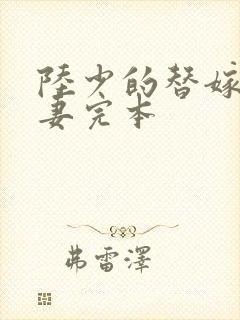 陸少的替嫁
妻完本
弗雷澤